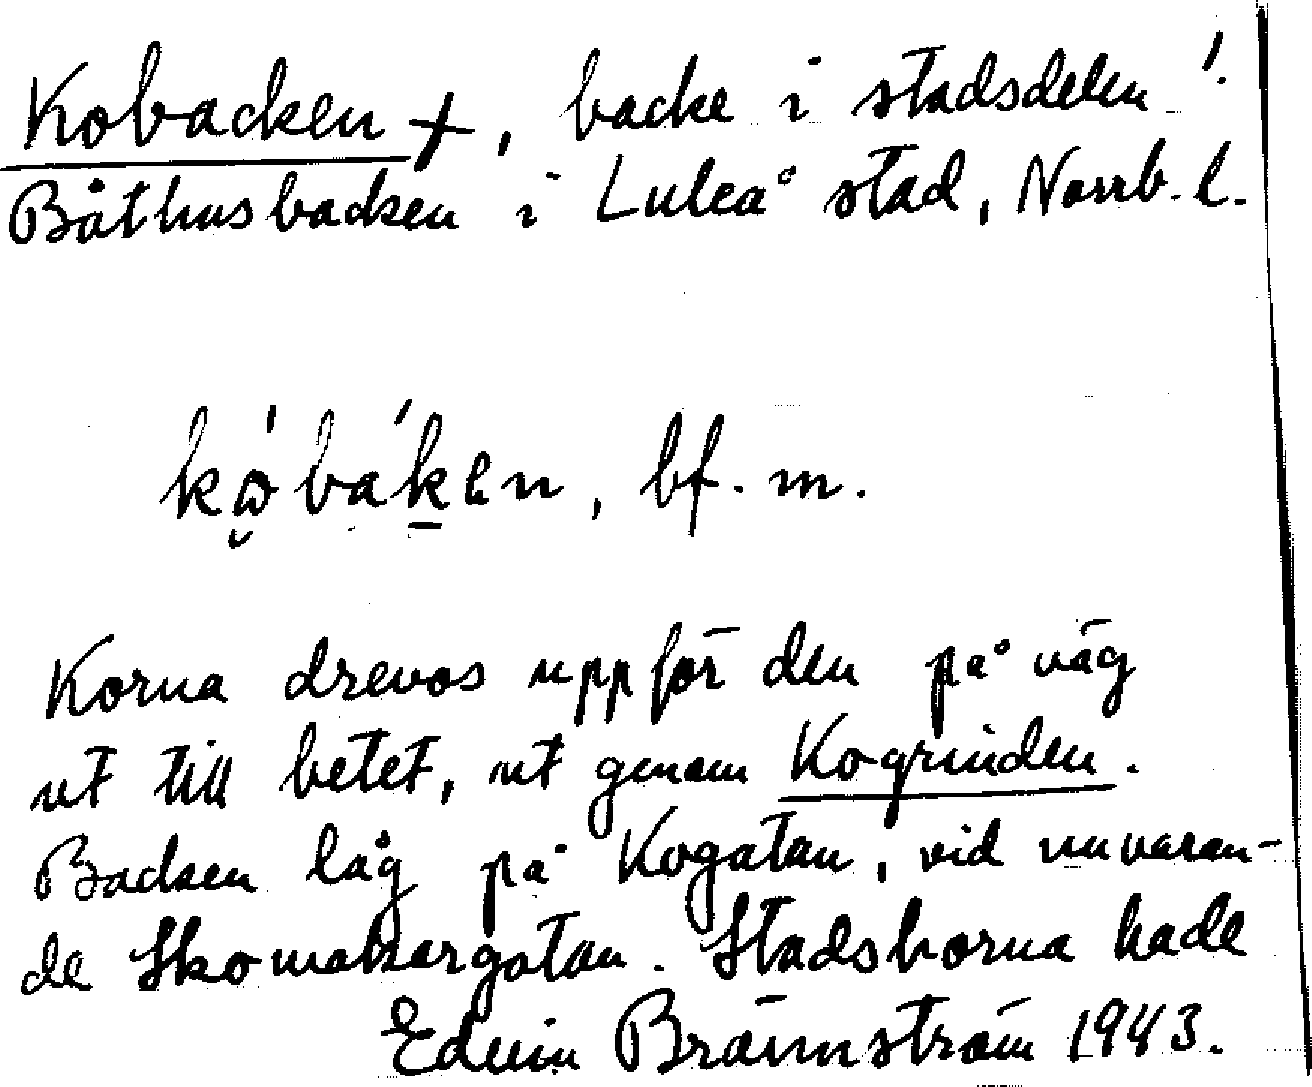 Kobacken +, backe i stadsdelen 1.
Båthusbacken i Luleå stad, Norrb. l.
kὼ̯báken, bf. m.
Korna drevos uppför den på väg
ut till betet, ut genom Kogrinden.
Backen låg på Kogatan, vid nuvaran-
de Skomakargatan. Stadsborna hade
Edvin Brännström 1943.